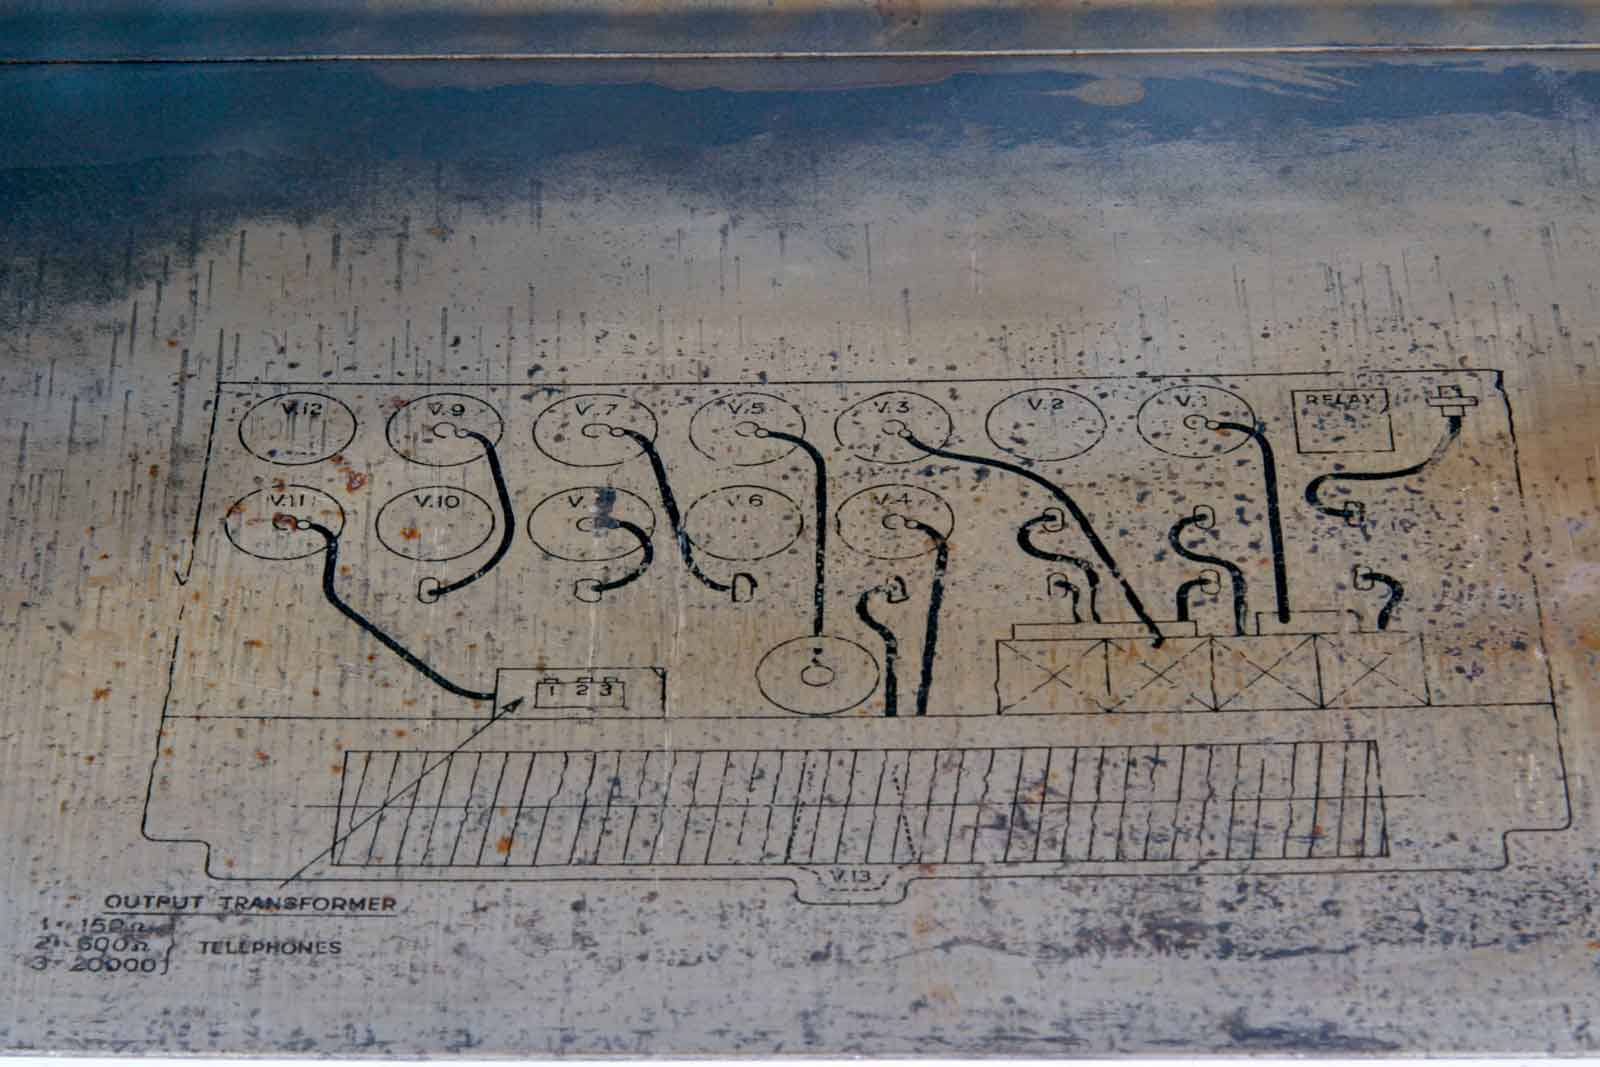 V.12 V.9 V.7 V.5 V.3 V.2 V.1 RELAY
V.11 V.10 V. V.6 V.4
1 2 3
V.13
OUTPUT TRANSFORMER
1- 150Ω
2- 600Ω } TELEPHONES
3- 20000